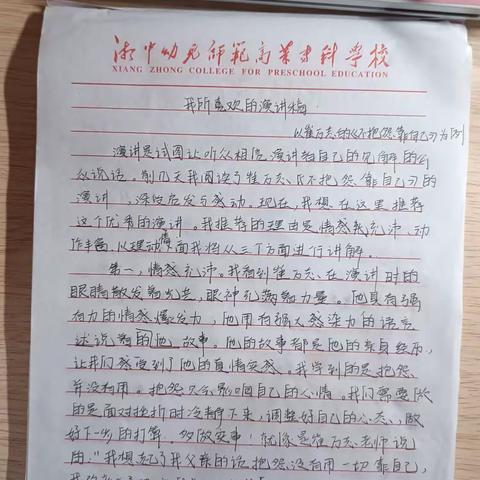 湘中幼儿师范高等专科学校
XIANG ZHONG COLLEGE FOR PRESCHOOL EDUCATION
我所喜欢的演讲稿
以崔万志的《不抱怨靠自己》为例
演讲是试图让听众相信演讲者自己的见解的公
众说话。前几天我阅读了崔万志《不抱怨靠自己》的
演讲,深受启发与感动。现在,我想在这里推荐
这个优秀的演讲。我推荐的理由是情感充沛、动
作丰富、以理动情面我将从三个方面进行讲解。
第一,情感充沛。我看到崔万志在演讲时的
眼睛散发着光芒,眼神充满着力量。他具有强
有力的情感爆发力,他用有强大感染力的语言
述说着的他故事。他的故事都是他的亲身经历,
让我们感受到了他的真情实感。我学到的是抱怨
并没有用。抱怨只会影响自己的心情。我们需要做
的是面对挫折时冷静下来,调整好自己的心态,做
好下一步的打算。多做实事!就像是崔万志老师说
的,"我想起了我父亲的话,抱怨没有用一切靠自己,